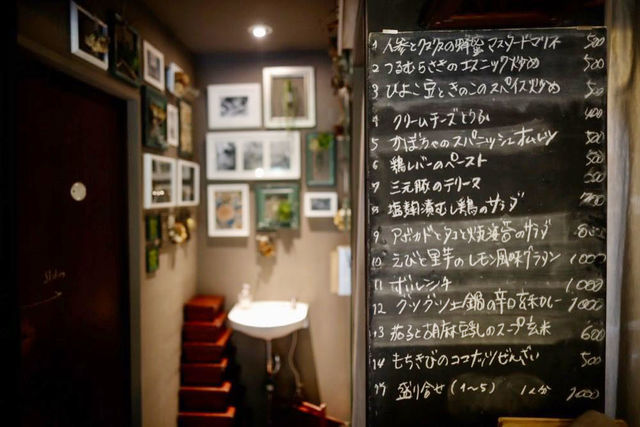 1 人参とクスクスの蜂蜜マスタードマリネ 500
2 つるむらさきのエスニック炒め 500
3 ひよこ豆ときのこのスパイス炒め 500
4 クリームチーズとうふ 400
5 かぼちゃのスパニッシュオムレツ 500
6 鶏レバーのペースト 500
7 三元豚のテリーヌ 500
8 塩麹漬むし鶏のサラダ
9 アボカドとタコと焼海苔のサラダ 800
10 えびと里芋のレモン風味グラタン 1000
11 ボルシチ 1000
12 グツグツ土鍋の辛口玄米カレー 1000
13 茄子と胡麻のスープ玄米 600
14 もちきびのココナッツぜんざい 500
15 盛り合せ (1〜5) 1人分 1000